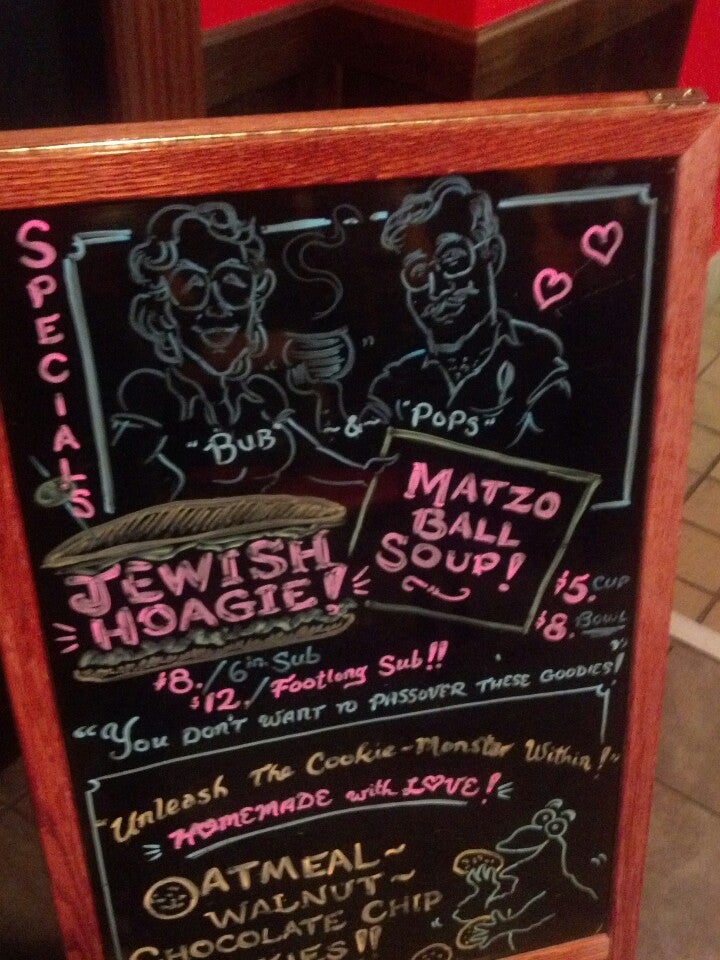 SPECIALS
"BUB" ~&~ "POPS"
JEWISH
HOAGIE!
MATZO
BALL
SOUP!
$5. CUP
$8. BOWL
$8./6in Sub
$12./Footlong Sub!!
"YOU DON'T WANT TO PASSOVER THESE GOODIES!
"Unleash The Cookie-Monster Within!"
HOMEMADE with LOVE!
OATMEAL~
WALNUT~
CHOCOLATE CHIP